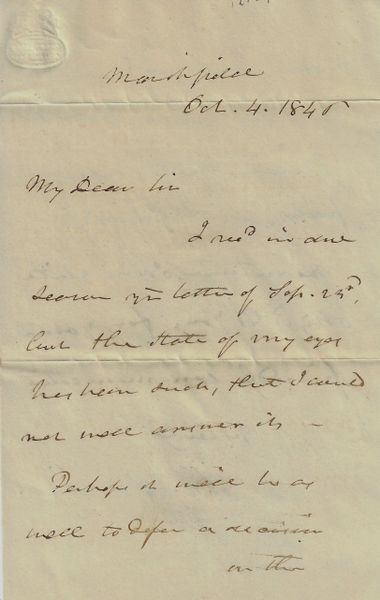 Marshfield
Oct. 4. 1845
My Dear Sir
I recd in due
season yr letter of Sep. 23d,
but the state of my eyes
has been such, that I could
not well answer it.
Perhaps it will be as
well to defer a decision
on the